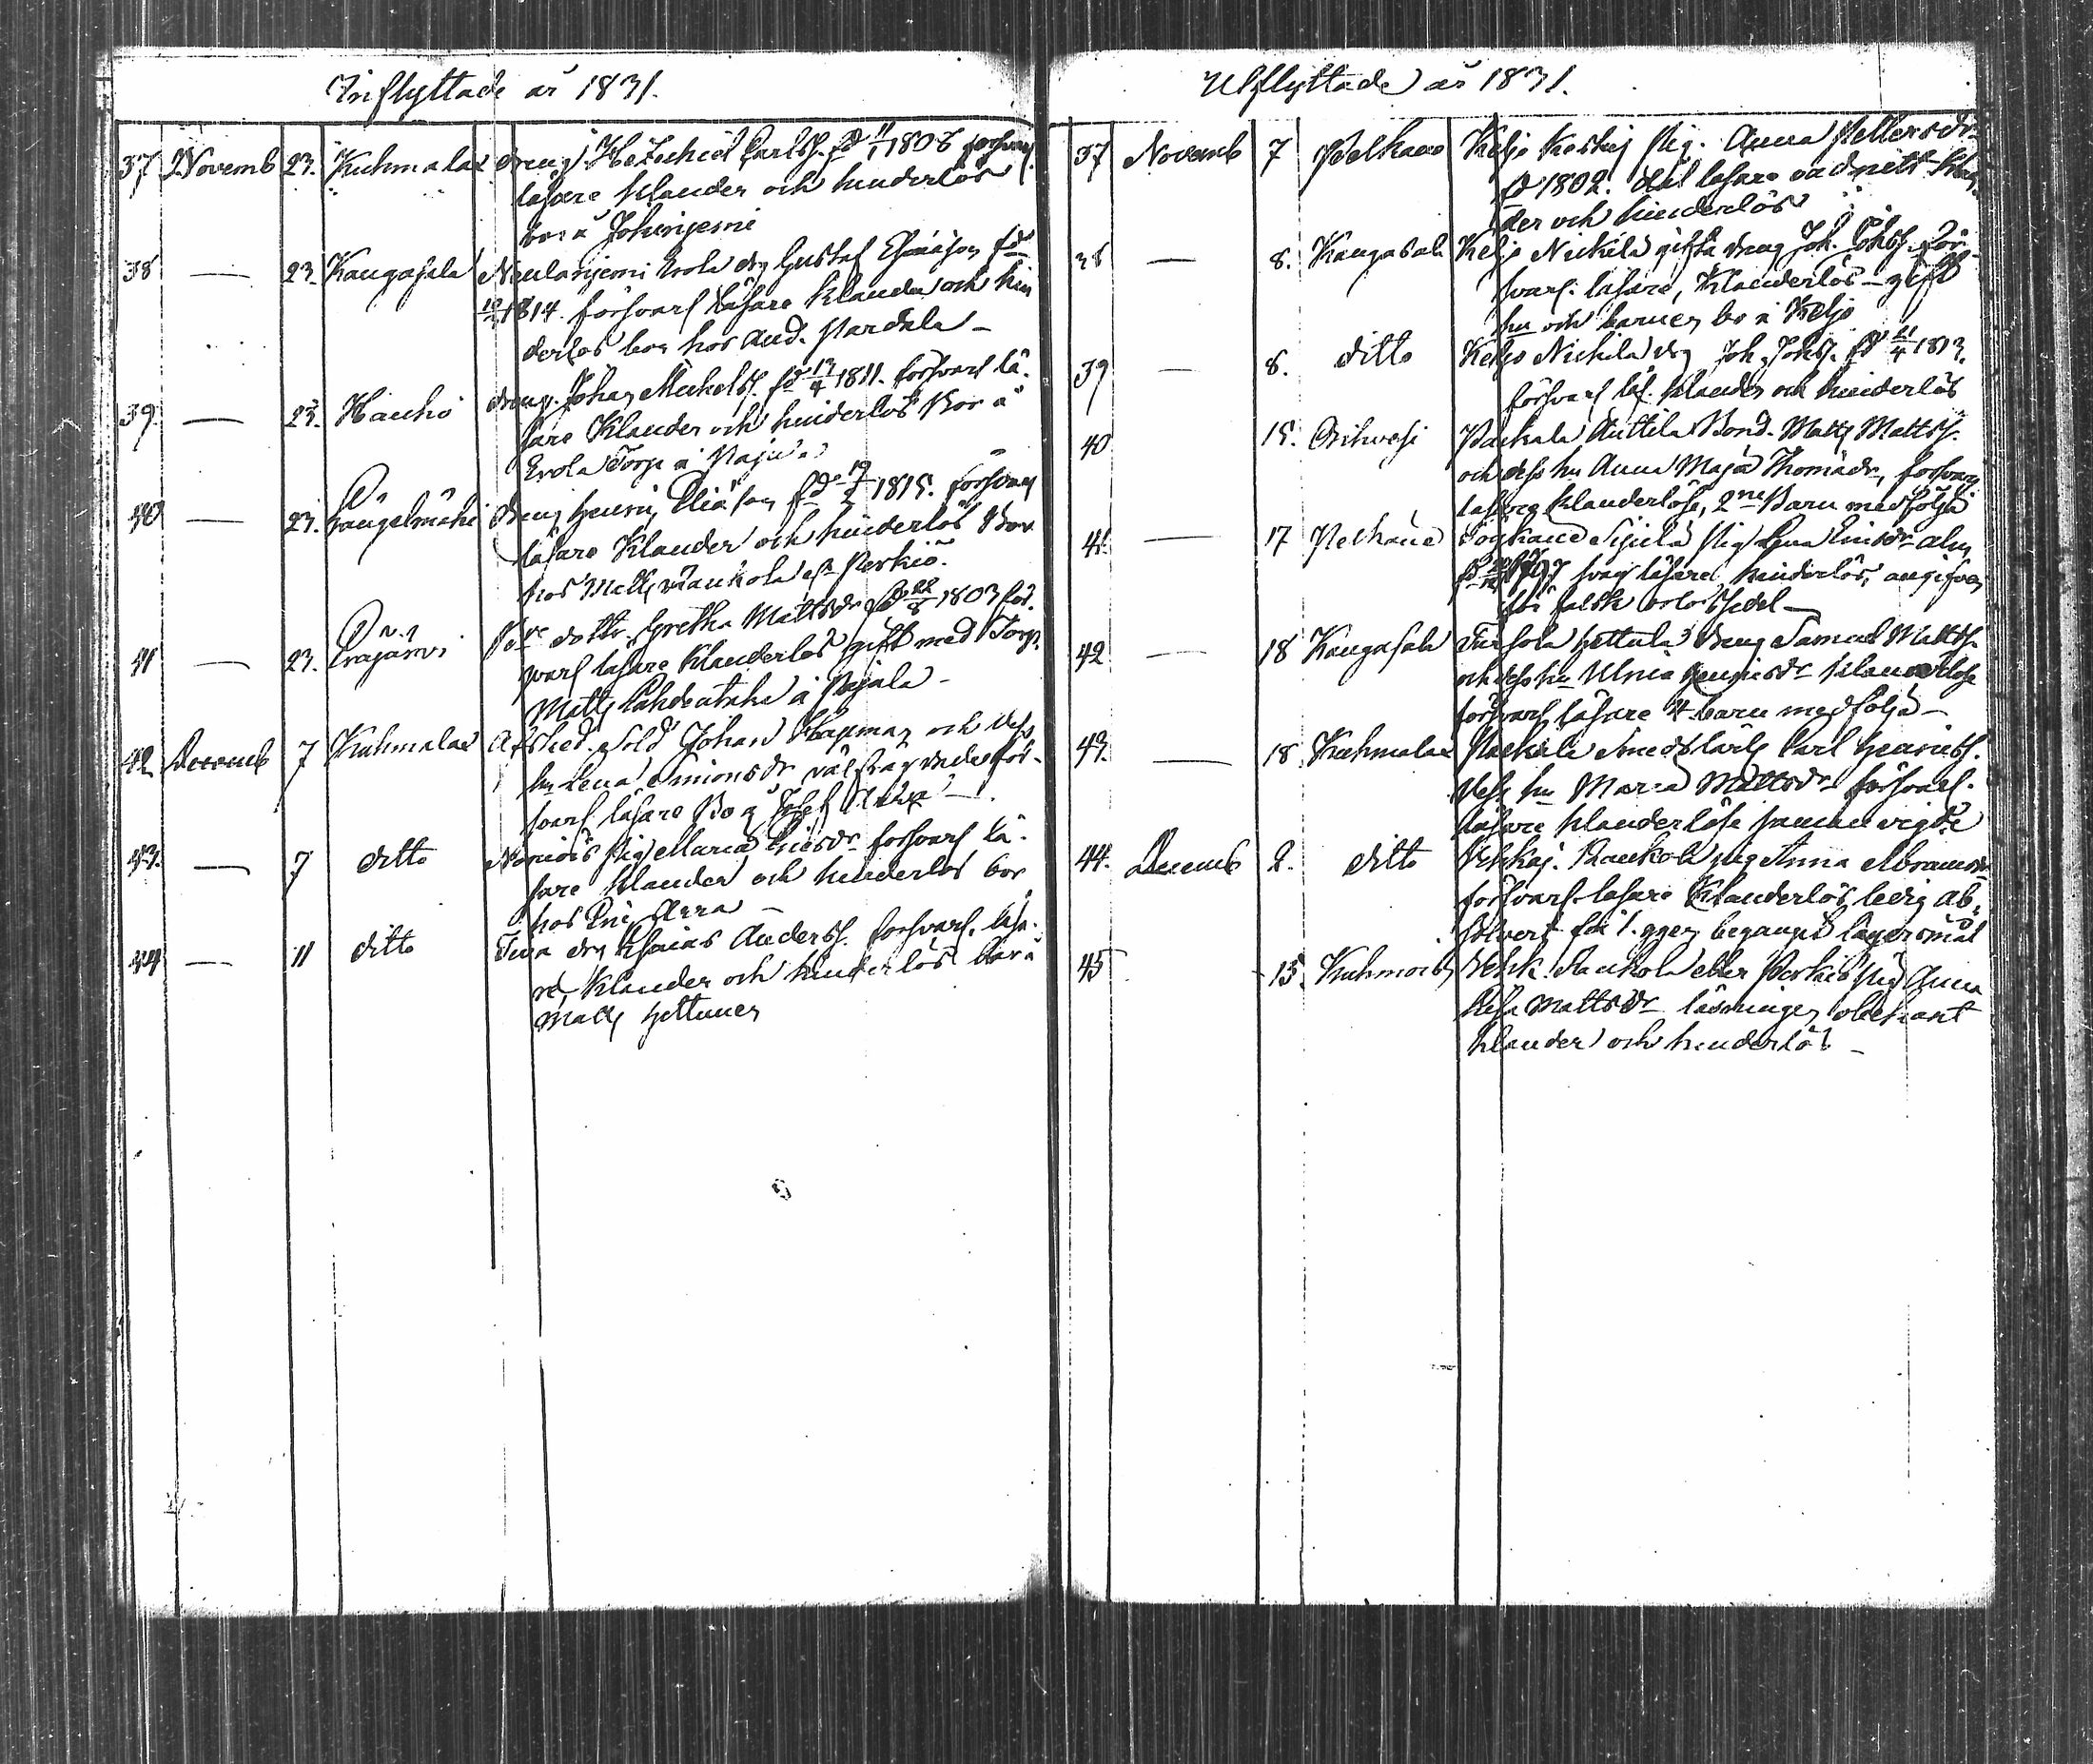 Inflyttade år 1831.
37 Novemb 23. Kuhmalax dreng Hezechiel Carlss. fd 11/1 1808 forsvarl.
läsare klander och hinderlös
bor å Johinjemi
38 — 23. Kangasala Neulanjemi Erola drg Gustaf Esaiäson fd
1814. försvarl läsare klander och hin
derlös bor hos And. Pardala —
39. — 23. Hauho dreng. Johan Michelss. fd 13/4 1811. försvarl lä-
sare klander och hinderlös Bor å
Erola Torp å Pajula
40 — 23. Längelmäki dreng Henric Eliäson fd 19/2 1815. försvarl
läsare Klander och hinderlös Bor
hos Matts Raukola Perkiö.
41 — 23. dottr. Gretha Mattsdr fd 22/8 1803 för-
svarl läsare klanderlös gift med Torp.
Matts å Pajala —
42 Decemb 7 Kuhmalax Afsked. Sold Johan Hapman och dess
hu Lena Simonsdr välfrägdade för-
svarl läsare Bo å
43. — 7 ditto pig Maria Ericsdr forsvarl lä-
sare klander och hinderlös bor
hos Eric —
44 — 11 ditto drg Esaias Anderss. forsvarl. läsa-
re, klander och hinderlös bor å
Matts Hettunen
Utflyttade år 1831.
37 Novemb 7 Pelkäne Keljo Keskis Pig. Anna Pettersdr
fd 1802. dål läsare admitt klan-
der och hinderlös
38 — 8. Kangasala Keljo Nickilä gifta dreng Joh. Johss. för-
svarl. läsare, Klanderlös — gift
hu och barnen bo å Keljo
39 — 8. ditto Keljo Nickilä drg Joh. Johss. fd 21/4 1813.
försvarl läs. klander och hinderlös
40 15. Orihvesi Packala Anttila Bond. Matts Mattss.
och dess hu Anna Maja Thomädr, forsvarl
läsare klanderlöse, 2ne Barn medfölja
41. — 17 Pelkäne Sijtila Pig Lena Ericsdr
svag läsare, hinderlös, angifven
för falsk orlofssedel —
42 — 18 Kangasala Hettula dreng Samuel Mattss.
och dess hu Ulrica Henricsdr klanderlöse
försvarl läsare 4 barn medfölja —
43. — 18 Kuhmalax Packala Smedskarln Carl Henricss.
dess hu Maria Mattsdr försvarl.
läsare klanderlöse samman vigde
44. Decemb 2. ditto Vehkaj. Raukola pig Anna Abramsdr
försvarl. läsare Klanderlös ledig ab-
solverf för 1. ggen begånget lägersmål
45 15. Kuhmois Vehk. Raukola eller Perkiö pig Anna
Lisa Mattsdr läsningen obekant
klander och hinderlös —